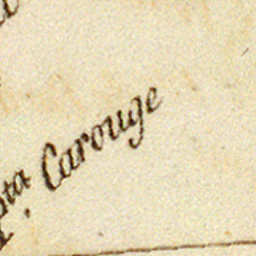 P.ta Carouge